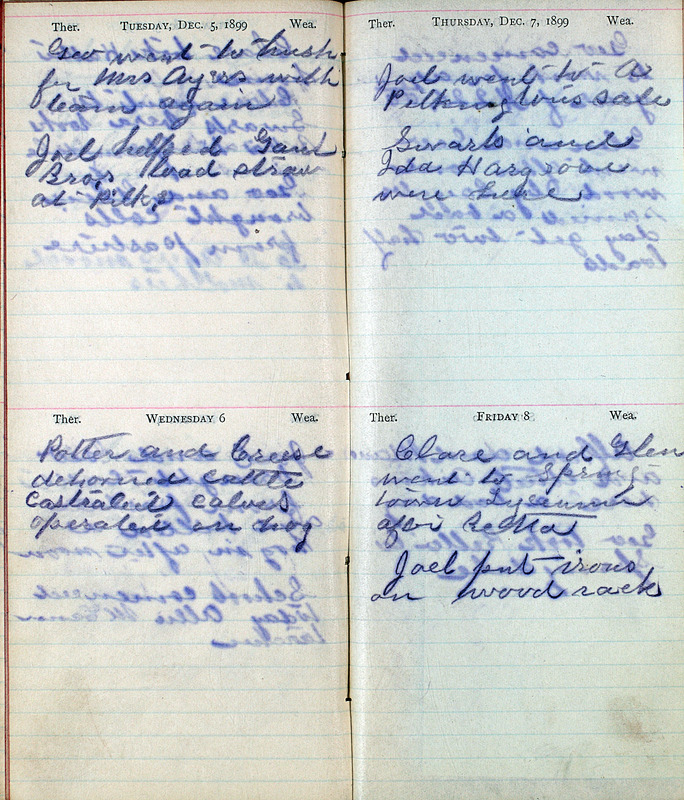 Ther. TUESDAY, DEC. 5, 1899 Wea.
Geo went to husk
for Mrs Ayers with
team again
Joel helped Gant
Bros load straw
at Pilks
Ther. WEDNESDAY 6 Wea.
Potter and Creese
dehorned cattle
Castrated calves
operated on hog
Ther. THURSDAY, DEC. 7, 1899 Wea.
Joel went to A
Pilkingtons sale
Swarts and
Ida Hargrove
were here
Ther. FRIDAY 8 Wea.
Clare and Glen
went to Spring
town Lyceumn
after Retta
Joel put irons
on wood rack